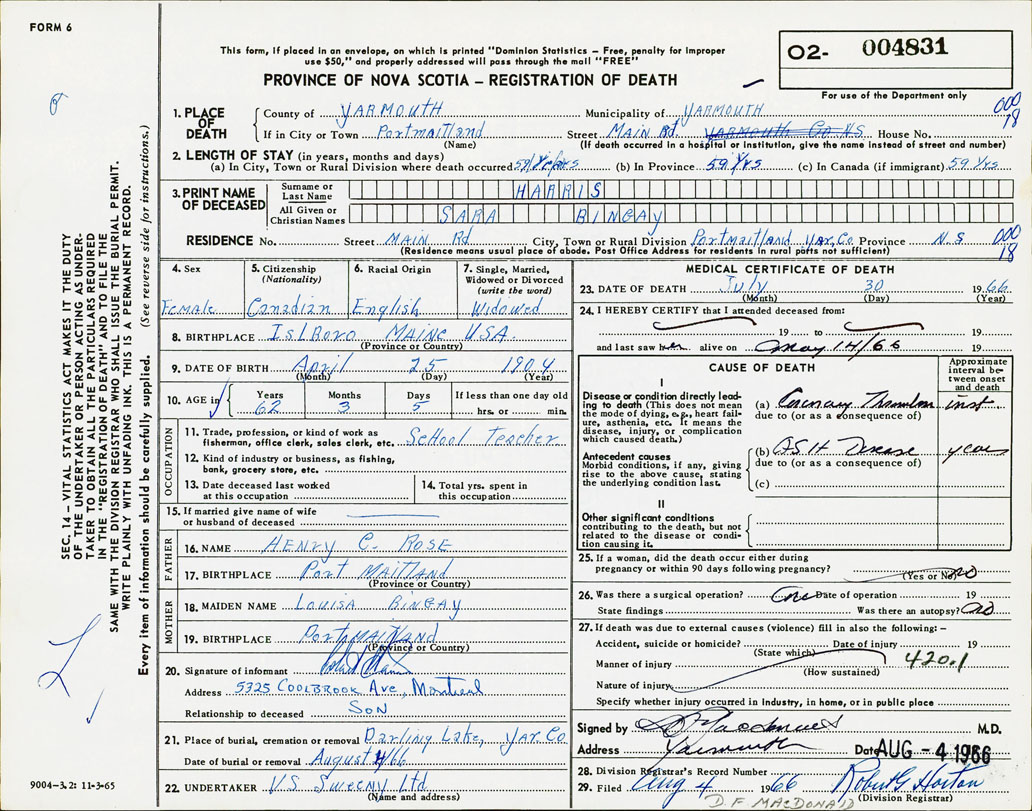 FORM 6
This form, if placed in an envelope, on which is printed "Dominion Statistics – Free, penalty for improper
use $50," and properly addressed will pass through the mail "FREE"
PROVINCE OF NOVA SCOTIA – REGISTRATION OF DEATH
O2- 004831
For use of the Department only
000
18
1. PLACE OF DEATH
County of YARMOUTH Municipality of YARMOUTH
If in City or Town Portmaitland Street MAIN Rd. YARMOUTH Co. N.S. House No.
(Name) (If death occurred in a hospital or institution, give the name instead of street and number)
2. LENGTH OF STAY (in years, months and days)
(a) In City, Town or Rural Division where death occurred 59 Years (b) In Province 59 Yrs (c) In Canada (if immigrant) 59 Yrs
3. PRINT NAME OF DECEASED
Surname or Last Name HARRIS
All Given or Christian Names SARA BINGAY
RESIDENCE No. Street MAIN Rd City, Town or Rural Division Portmaitland Yar. Co Province N.S
000
18
(Residence means usual place of abode. Post Office Address for residents in rural parts not sufficient)
4. Sex Female
5. Citizenship (Nationality) Canadian
6. Racial Origin English
7. Single, Married, Widowed or Divorced (write the word) Widowed
8. BIRTHPLACE IsLBoro MAINE USA.
(Province or Country)
9. DATE OF BIRTH April 25 1904
(Month) (Day) (Year)
10. AGE in Years 62 Months 3 Days 5 If less than one day old hrs. or min.
OCCUPATION
11. Trade, profession, or kind of work as
fisherman, office clerk, sales clerk, etc. School Teacher
12. Kind of industry or business, as fishing,
bank, grocery store, etc.
13. Date deceased last worked
at this occupation
14. Total yrs. spent in
this occupation
15. If married give name of wife
or husband of deceased
FATHER
16. NAME HENRY C. ROSE
17. BIRTHPLACE Port MAITLAND
(Province or Country)
MOTHER
18. MAIDEN NAME Louisa BINGAY
19. BIRTHPLACE PortMAITLAND
(Province or Country)
20. Signature of informant
Address 5325 COOLBROOK Ave, Montreal
Relationship to deceased SON
21. Place of burial, cremation or removal Darling Lake, Yar. Co
Date of burial or removal August /66
22. UNDERTAKER V.S Sweeny Ltd.
(Name and address)
MEDICAL CERTIFICATE OF DEATH
23. DATE OF DEATH July 30 1966
(Month) (Day) (Year)
24. I HEREBY CERTIFY that I attended deceased from:
19 to 19
and last saw her alive on May 14/66 19
CAUSE OF DEATH
Approximate interval between onset and death
I
Disease or condition directly leading to death (This does not mean
the mode of dying, e.g., heart failure, asthenia, etc. It means the
disease, injury, or complication
which caused death.)
(a) Coronary Thrombosis inst
due to (or as a consequence of)
Antecedent causes
Morbid conditions, if any, giving
rise to the above cause, stating
the underlying condition last.
(b) ASH Disease years
due to (or as a consequence of)
(c)
II
Other significant conditions
contributing to the death, but not
related to the disease or condition causing it.
25. If a woman, did the death occur either during
pregnancy or within 90 days following pregnancy? no
(Yes or No)
26. Was there a surgical operation? Date of operation 19
State findings Was there an autopsy? no
27. If death was due to external causes (violence) fill in also the following: –
Accident, suicide or homicide? Date of injury 19
(State which)
Manner of injury 420.1
(How sustained)
Nature of injury
Specify whether injury occurred in Industry, in home, or in public place
Signed by M.D.
Address Yarmouth Date AUG - 4 1966
28. Division Registrar's Record Number
29. Filed Aug 4 1966 Robert G Horton
D. F. MACDONALD (Division Registrar)
SEC. 14 – VITAL STATISTICS ACT MAKES IT THE DUTY
OF THE UNDERTAKER OR PERSON ACTING AS UNDER-
TAKER TO OBTAIN ALL THE PARTICULARS REQUIRED
IN THE "REGISTRATION OF DEATH" AND TO FILE THE
SAME WITH THE DIVISION REGISTRAR WHO SHALL ISSUE THE BURIAL PERMIT.
WRITE PLAINLY WITH UNFADING INK. THIS IS A PERMANENT RECORD.
Every item of information should be carefully supplied. (See reverse side for instructions.)
9004-3.2: 11-3-65